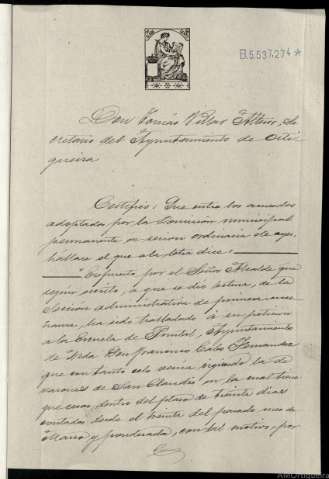 B.5.537.274 *
Don Tomás Villar Alteiro, Se-
cretario del Ayuntamiento de Orti-
gueira
Certifico: Que entre los acuerdos
adoptados por la Comisión municipal
permanente en sesion ordinaria de ayer,
hallase el que a la letra dice:
"Expuesto por el Señor Alcalde que
segun escrito, a que se dio lectura, de la
Sección administrativa de primera ense-
ñanza, ha sido trasladado á su petición
a la Escuela de Ayuntamiento
de Don Francisco Cabo Fernandez
que en tanto esto venia rigiendo la de
varones de San Claudio en la cual tiene
que cesar dentro del plazo de treinta dias
contados desde el veinte del pasado mes de
Marzo y ponderada, con tal motivo, por